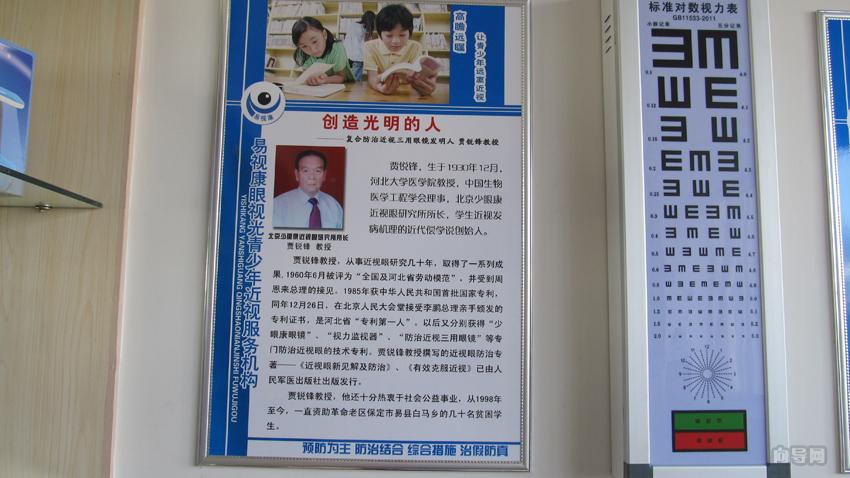 高瞻远瞩
让青少年远离近视
易视康
易视康眼视光青少年近视服务机构
YISHIKANG YANSHIGUANG QINGSHAONIANJINSHI FUWUJIGOU
创造光明的人
———复合防治近视三用眼镜发明人 贾锐锋教授
贾锐锋，生于1930年12月，
河北大学医学院教授，中国生物
医学工程学会理事，北京少眼康
近视眼研究所所长，学生近视发
病机理的近代偿学说创始人。
北京少眼康近视眼研究所所长
贾锐锋 教授
贾锐锋教授，从事近视眼研究几十年，取得了一系列成
果，1960年6月被评为“全国及河北省劳动模范”，并受到周
恩来总理的接见。1985年获中华人民共和国首批国家专利，
同年12月26日，在北京人民大会堂接受李鹏总理亲手颁发的
专利证书，是河北省“专利第一人”。以后又分别获得“少
眼康眼镜”、“视力监视器”、“防治近视三用眼镜”等专
门防治近视眼的技术专利。贾锐锋教授撰写的近视眼防治专
著——《近视眼新见解及防治》、《有效克服近视》已由人
民军医出版社出版发行。
贾锐锋教授，他还十分热衷于社会公益事业，从1998年
至今，一直资助革命老区保定市易县白马乡的几十名贫困学
生。
预防为主 防治结合 综合措施 治假防真
标准对数视力表
GB11533-2011
小数记录 五分记录
0.1 4.0
0.12 4.1
0.15 4.2
0.2 4.3
0.25 4.4
0.3 4.5
0.4 4.6
0.5 4.7
0.6 4.8
0.8 4.9
1.0 5.0
1.2 5.1
1.5 5.2
2.0 5.3
向导网